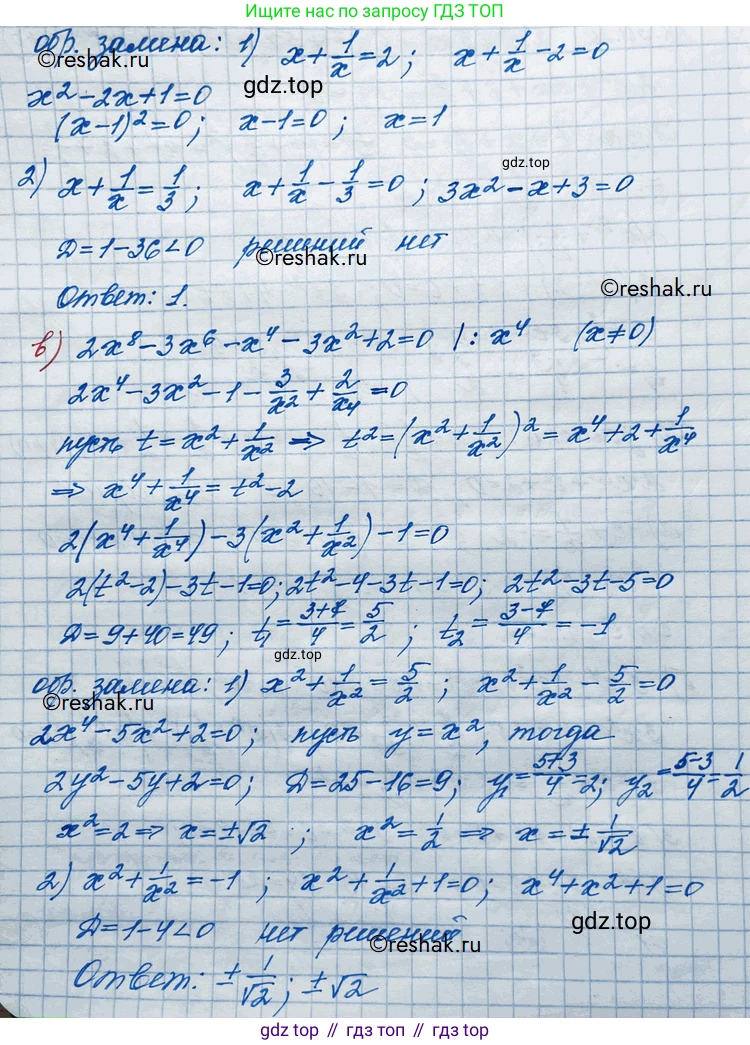 Больше решений смотри на gdz.top
обр. замина: 1) x+1/x=2; x+1/x-2=0
©reshak.ru
gdz.top
x²-2x+1=0
(x-1)²=0; x-1=0; x=1
gdz.top
2) x+1/x=1/3; x+1/x-1/3=0; 3x²-x+3=0
D=1-36<0 решений нет
©reshak.ru
Ответ: 1.
©reshak.ru
в) 2x⁸-3x⁶-x⁴-3x²+2=0 |: x⁴ (x≠0)
2x⁴-3x²-1-3/x²+2/x⁴=0
пусть t=x²+1/x² ⇒ t²=(x²+1/x²)²=x⁴+2+1/x⁴
⇒ x⁴+1/x⁴=t²-2
2(x⁴+1/x⁴)-3(x²+1/x²)-1=0
2(t²-2)-3t-1=0; 2t²-4-3t-1=0; 2t²-3t-5=0
D=9+40=49; t₁=(3+7)/4=5/2; t₂=(3-7)/4=-1
gdz.top
обр. замина: 1) x²+1/x²=5/2; x²+1/x²-5/2=0
©reshak.ru
2x⁴-5x²+2=0; пусть y=x², тогда
2y²-5y+2=0; D=25-16=9; y₁=(5+3)/4=2; y₂=(5-3)/4=1/2
x²=2 ⇒ x=±√2; x²=1/2 ⇒ x=±1/√2
2) x²+1/x²=-1; x²+1/x²+1=0; x⁴+x²+1=0
D=1-4<0 нет решений
gdz.top
©reshak.ru
Ответ: ±1/√2; ±√2
gdz top // гдз топ // gdz.top